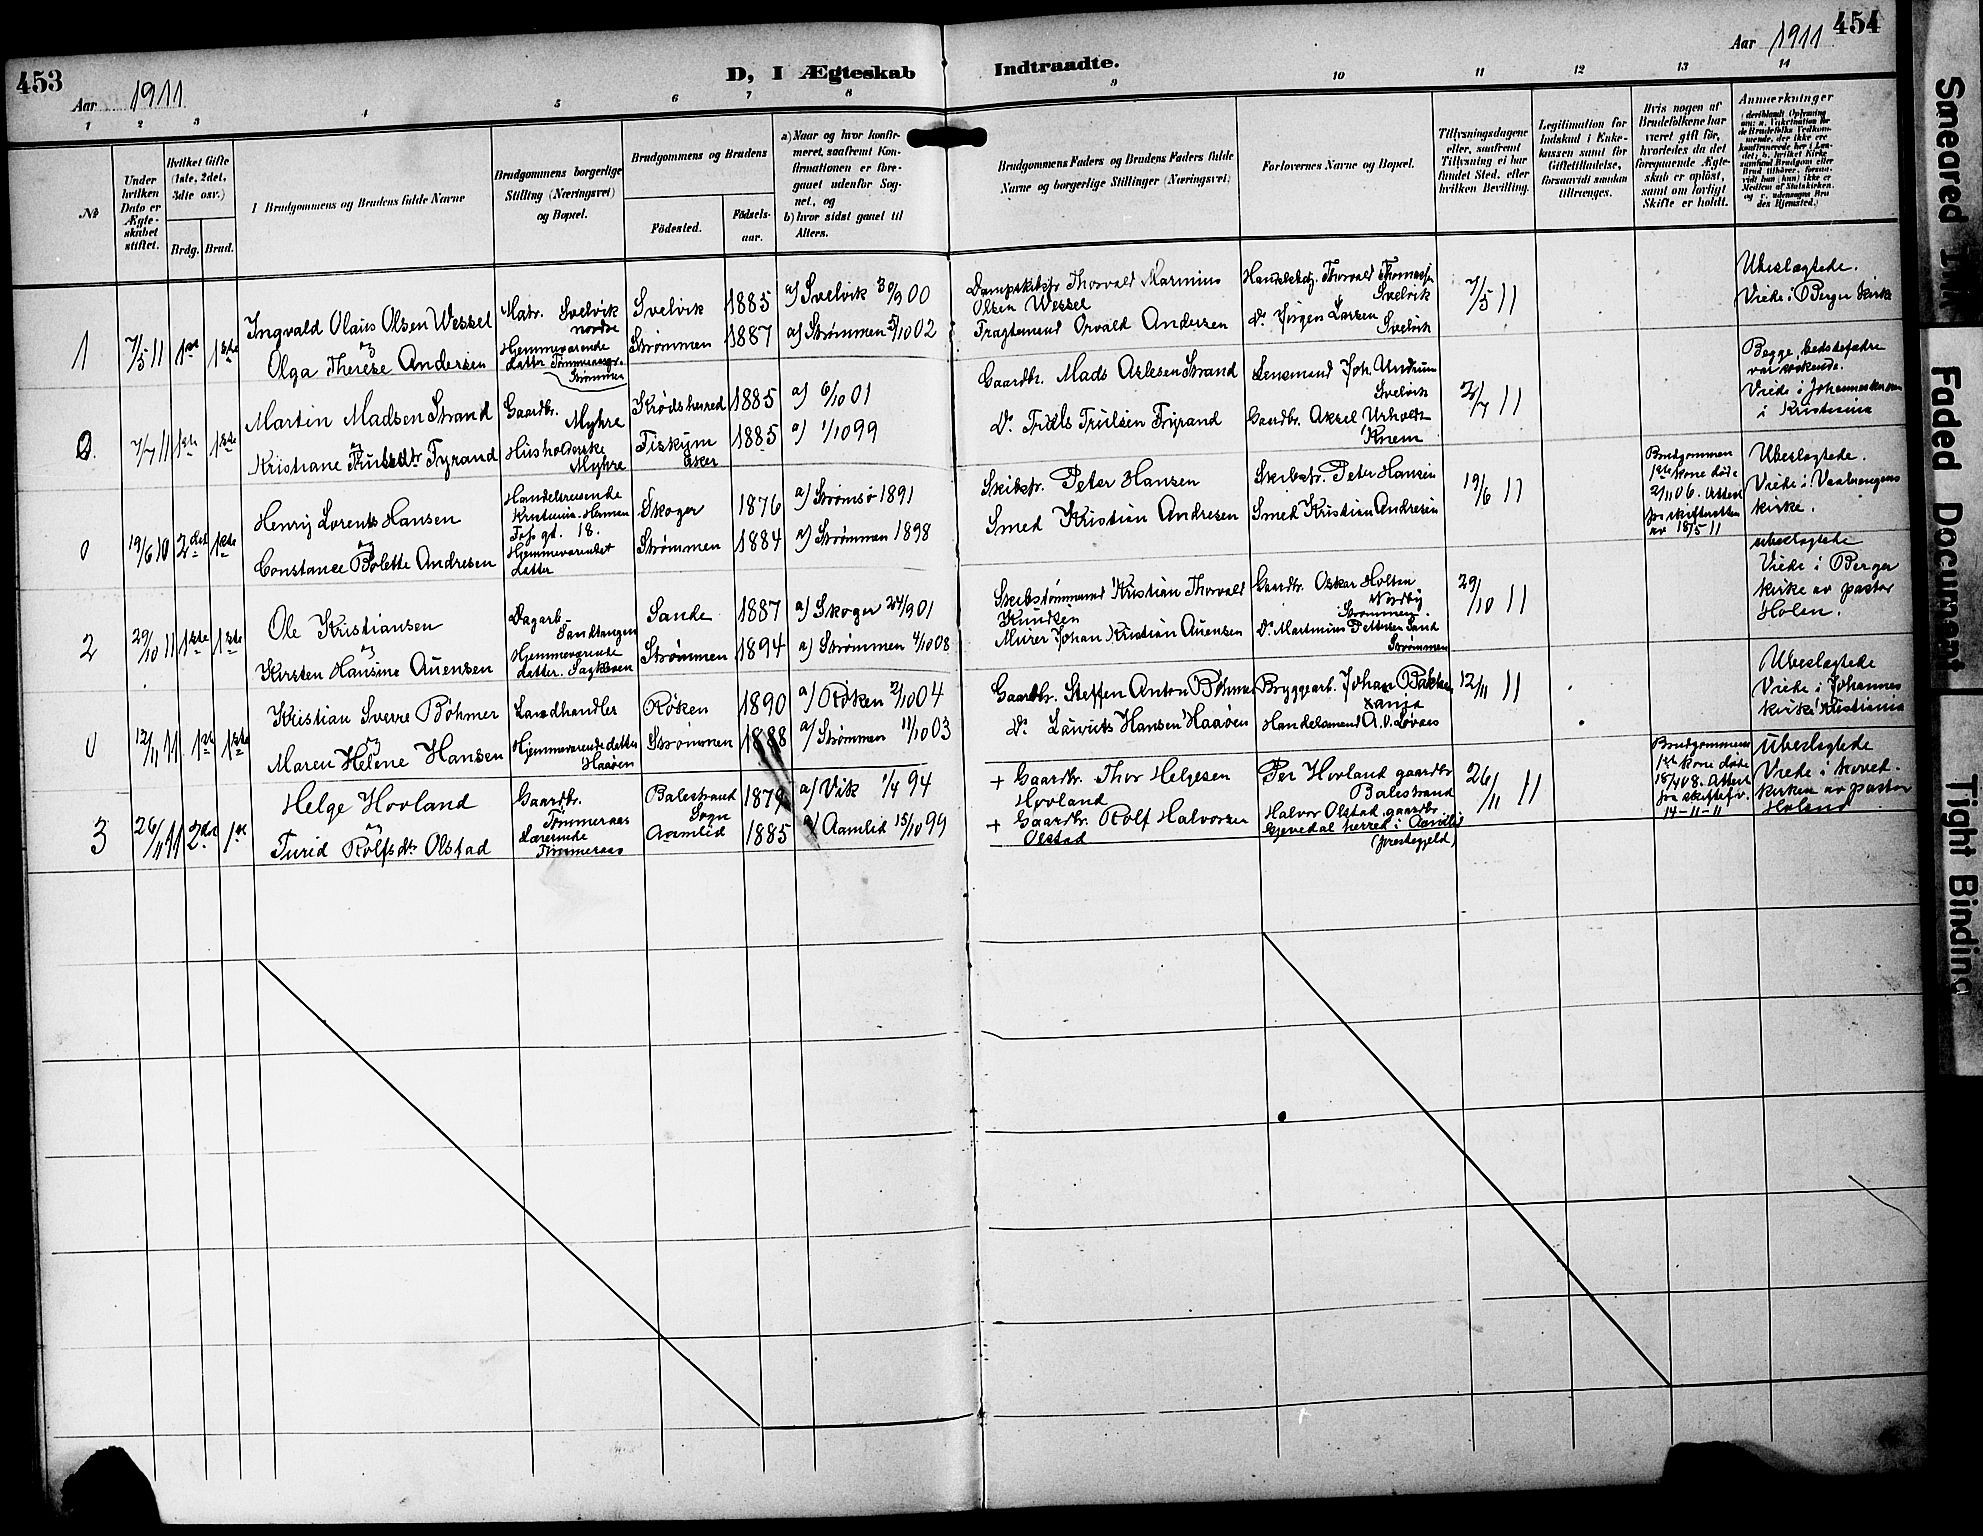 453
Aar 1911
D, I Ægteskab Indtraadte.
Aar 1911
454
1 2 3 4 5 6 7 8 9 10 11 12 13 14
№
Under hvilken Dato er Ægteskabet stiftet.
Hvilket Gifte (1ste, 2det, 3die osv.)
Brdg. Brud.
I Brudgommens og Brudens fulde Navne
Brudgommens borgerlige Stilling (Næringsvei) og Bopæl.
Brudgommens og Brudens
Fødested. Fødselsaar.
a) Naar og hvor konfirmeret, saafremt Konfirmationen er foregaaet udenfor Sognet, og
b) hvor sidst gaaet til Alters.
Brudgommens Faders og Brudens Faders fulde Navne og borgerlige Stillinger (Næringsvei)
Forlovernes Navne og Bopæl.
Tillysningsdagene eller, saafremt Tillysning ei har fundet Sted, efter hvilken Bevilling.
Legitimation for Indskud i Enkekassen samt for Giftetilladelse, forsaavidt saadan tiltrænges.
Hvis nogen af Brudefolkene har været gift før, hvorledes da det foregaaende Ægteskab er opløst, samt om lovligt Skifte er holdt.
Anmærkninger
1 7/5 11 1ste 1ste
Ingvald Olaus Olsen Wessel
og
Olga Therese Andersen
Matr. Svelvik nordre
Hjemmeværende datter Tømmeraas Strømmen
Svelvik 1885 a) Svelvik 30/9 00
Strømmen 1887 a) Strømmen 5/10 02
Dampskibsfr Thorvald Marinius Olsen Wessel
Fragtemand Orvald Andersen
Handelsbetj. Thorvald Thomassen Svelvik
Do Jørgen Larsen Svelvik
7/5 11
Ubeslægtede.
Viede i Berger kirke
0. 7/7 11 1ste 1ste
Martin Madsen Strand
og
Kristiane Trulsdtr Fyrand
Gaardbr. Myhre
Husholderske Myhre
Krødsherred 1885 a) 6/10 01
Fiskum Eker 1885 a) 1/10 99
Gaardbr. Mads Aslesen Strand
Do Truls Trulsen Fyrand
Lensmand Joh. Undrum Svelvik
Gaardbr Aksel Urholdt Knem
2/7 11
Begge bedstefædre var søskende.
Viede i Johanneskirken i Kristiania
0 19/6 10 2det 1ste
Henry Lorents Hansen
og
Constance Bolette Andresen
Handelsreisende Kristiania. Herman Foss gd. 18.
Hjemmeværendet datter
Skoger 1876 a) Strømsø 1891
Strømmen 1884 a) Strømmen 1898
Skibsfr. Peter Hansen
Smed Kristian Andresen
Skibsfr. Peter Hansen
Smed Kristian Andresen
19/6 11
Brudgommen 1ste kone døde 2/11 06. Attest fra skifteretten av 18/5 11
Ubeslægtede.
Viede i Vaalerengens kirke.
2 29/10 11 1ste 1ste
Ole Kristiansen
og
Kirsten Hansine Auensen
Dagarb. Sandtangen
Hjemmeværende datter. Sagkåsen
Sande 1887 a) Skoger 24/9 01
Strømmen 1894 a) Strømmen 4/10 08
Skibstømmermd Kristian Thorvald Knudsen
Murer Johan Kristian Auensen
Gaardbr. Oskar Holtan Nordby Strømmen.
Do Martinius Pettersen Sand Strømmen
29/10 11
Ubeslægtede
Viede i Berger kirke av pastor Holen.
0 12/11 11 1ste 1ste
Kristian Sverre Bøhmer
og
Maren Helene Hansen
Landhandler
Hjemmeværende datter Haaøen
Røken 1890 a) Røken 2/10 04
Strømmen 1888 a) Strømmen 11/10 03
Gaardbr. Steffen Anton Bøhmer
Do Lauritz Hansen Haaøen
Bryggearb. Johan Bakken Xania
Handelsmand A. O. Lovaas
12/11 11
Ubeslægtede
Viede i Johannes kirke Kristiania
3 26/11 11 2de 1ste
Helge Hovland
og
Turid Rolfsdtr Olstad
Gaardbr. Tømmeraas
Lærerinde Tømmeraas
Balestrand Sogn 1879 a) Vik 1/7 94
Aamlid 1885 a) Aamlid 15/10 99
+ Gaardbr. Thor Helgesen Hovland
+ Gaardbr. Rolf Halvorsen Olstad
Per Hovland gaardbr Balestrand
Halvor Olstad gaardbr Gjevedal herred i Aamlid prestegjeld
26/11 11
Brudgommens 1ste kone døde 18/4 08. Attest fra skiftefr. 14-11-11
Ubeslægtede
Viede i hovedkirken av pastor Holand
Smeared Ink
Faded Document
Tight Binding